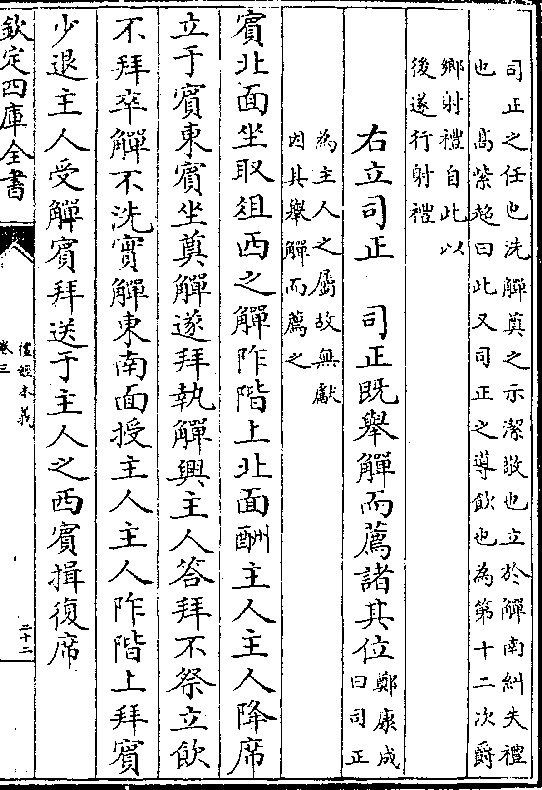 司正之任也洗觶奠之示潔敬也立於觶南糾失禮
也　高紫超曰此又司正之導飲也為第十二次爵
鄉射禮自此以
後遂行射禮
右立司正　司正既舉觶而薦諸其位鄭康成
曰司正
為主人之屬故無獻
因其舉觶而薦之
賓北面坐取俎西之觶阼階上北面酬主人主人降席
立于賓東賓坐奠觶遂拜執觶興主人答拜不祭立飲
不拜卒觶不洗實觶東南面授主人主人阼階上拜賓
少退主人受觶賓拜送于主人之西賓揖復席
欽定四庫全書
禮經本義
卷三
二十二